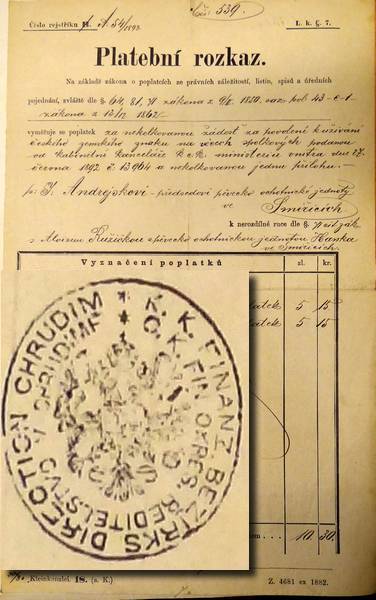 Číslo rejstříku A 54/1893. Čís. 539. L. k. č. 7.
Platební rozkaz.
Na základě zákona o poplatcích ze právních náležitostí, listin, spisů a úředních
pojednání, zvláště dle § 64, 81, 71 zákona z 9/II 1850, saz. pol. 43 a 1
zákona z 13/12 1862
vyměřuje se poplatek za nekolkovanou žádost za povolení k užívání
českého zemského znaku na věcech spolkových podanou
od kabinetní kanceláře k. k. ministeriu vnitra dne 27.
června 1892 č. 13964 a nekolkovanou jednu přílohu.
p. J. Andrejskovi předsedovi pěvecko ochotnické jednoty
ve Smiřicích
k nerozdílné ruce dle §
s Aloisem Růžičkou a pěvecko ochotnickou jednotou Hanka
ve Smiřicích.
Vyznačení poplatků zl. kr.
5 15
5 15
10 30
K. K. FINANZ. BEZIRKS DIRECTION CHRUDIM
C. K. FIN. OKRES. ŘEDITELSTVO V CHRUDIMĚ
Kleinkanzlei 18. (a. K.) Z. 4681 ex 1882.